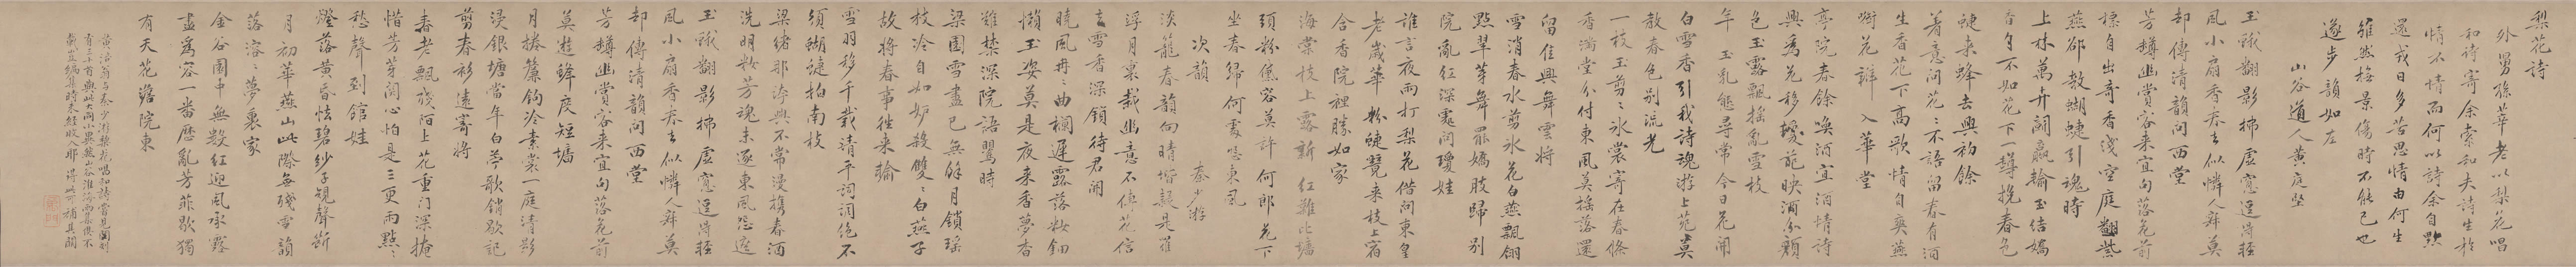 梨花詩
外舅孫莘老以梨花唱
和詩寄余索和夫詩生於
情不情而何以詩余自黜
還我日多苦思情由何生
雖然撫景傷時不能已也
遂步韻如左
山谷道人黃庭堅
玉骨翻影拂虛寬逞得輕
風小扇香吞去似憐人辭莫
却傳清韻問西堂
芳罇幽賞客來宜向落花前
標自出奇香淺空庭翻紫
燕郤教蝴蝶引魂時
上林萬卉鬭贏輸玉結嬌
香自不如花下一罇挽春色
蜨来蜂去興初餘
着意問花花不語留春有酒
生香花下高歌情自爽燕
啣花辭入華堂
亭院春餘喚酒宜酒情詩
興為花移矇矓葩映酒為顏
色玉露飄搖亂雪枝
年玉亂態尋常今日花開
白雪香引我詩魂游上苑莫
教春色別流光
一枝玉剪剪冰裳寄在春條
香滿堂分付東風莫搖落還
留佳興舞雲將
雪消春水剪冰花白燕飄翎
點翠芽舞罷嬌肢歸別
院亂紅深處問瓊娃
誰言夜雨打梨花借問東皇
老歲華粉蜨雙來枝上宿
合香院裡勝如家
海棠枝上露新紅難比墻
頭粉傷容莫許何郎花下
坐春歸何處怨東風
次韻
秦少游
淡籠春韻向晴墻疑是羅
浮月裏栽幽意不傳花信
去雪香深鎖待君開
曉風冉曲欄遲露落妝鈿
懶玉姿莫是夜來香夢杳
難禁深院語鶯時
梁園雪盡已無餘月鎖瑶
枝冷自如妒殺雙雙白燕子
故將春事徃来輸
雪羽移千載清平詞調絕不
須蝴蜨拍南枝
梁緒那許興不常漫携春酒
洗明妝芳魂未逐東風怨遮
玉骨翻影拂虛寬逞得輕
風小扇香吞去似憐人辭莫
却傳清韻問西堂
芳罇幽賞客來宜向落花前
莫遊蜂度短墻
月捲簾鉤冷素裳庭清影
浸銀塘當年白苧歌銷歇記
剪春衫遠寄將
春老飄殘陌上花重门深掩
惜芳芽關心怕是三更雨點點
愁聲到館娃
燈落黄昏怯碧紗子規聲斷
月初華燕山此際無殘雪韻
落溶溶夢裏家
金谷園中無數紅迎風承露
盡為容一番歷亂芳菲歇獨
有天花澹院東
黄涪翁与秦少游梨花唱和詩嘗見圖刻